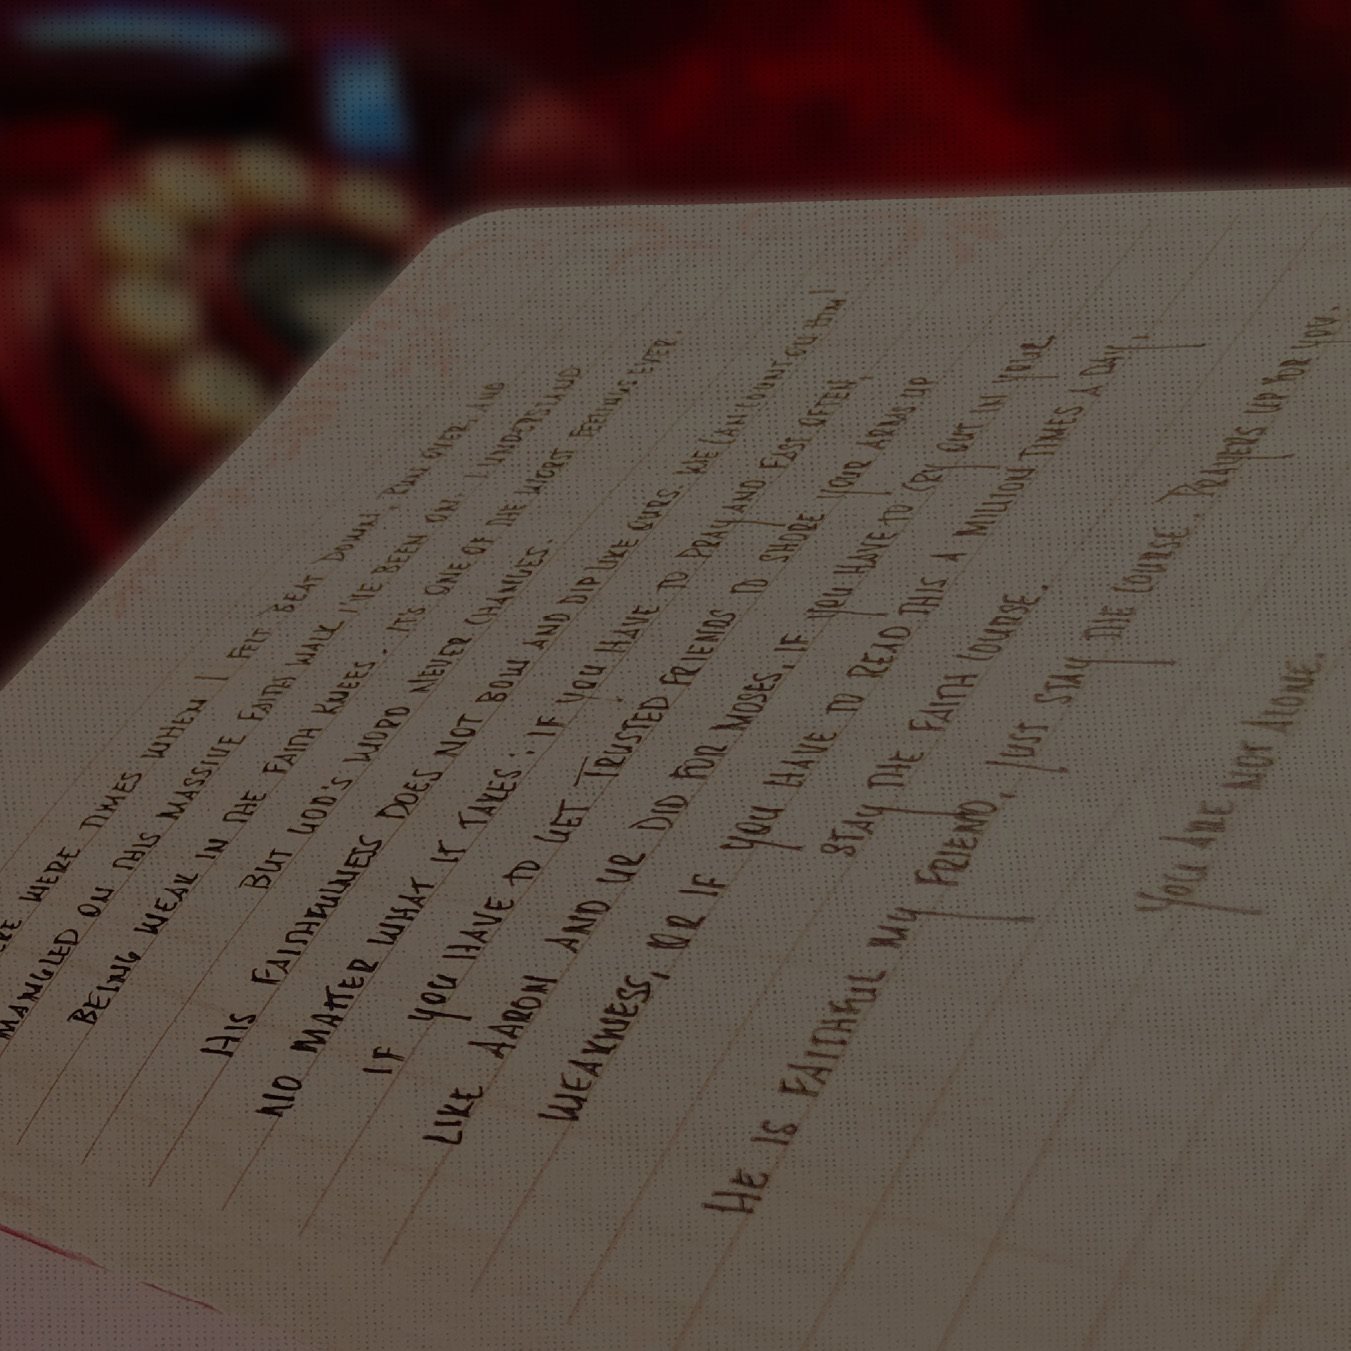 WERE TIMES WHEN I FELT BEAT DOWN, RUN OVER, AND
MANGLED ON THIS MASSIVE FAITH WALK I'VE BEEN ON. I UNDERSTAND
BEING WEAK IN THE FAITH KNEES. IT'S ONE OF THE WORST FEELINGS EVER.
BUT GOD'S WORD NEVER CHANGES.
HIS FAITHFULNESS DOES NOT BOW AND DIP LIKE OURS. WE CAN COUNT ON HIM!
NO MATTER WHAT IT TAKES: IF YOU HAVE TO PRAY AND FAST OFTEN,
IF YOU HAVE TO GET TRUSTED FRIENDS TO SHORE YOUR ARMS UP
LIKE AARON AND UR DID FOR MOSES, IF YOU HAVE TO CRY OUT IN YOUR
WEAKNESS, OR IF YOU HAVE TO READ THIS A MILLION TIMES A DAY,
STAY THE FAITH COURSE.
HE IS FAITHFUL MY FRIEND, JUST STAY THE COURSE. PRAYERS UP FOR YOU.
YOU ARE NOT ALONE.